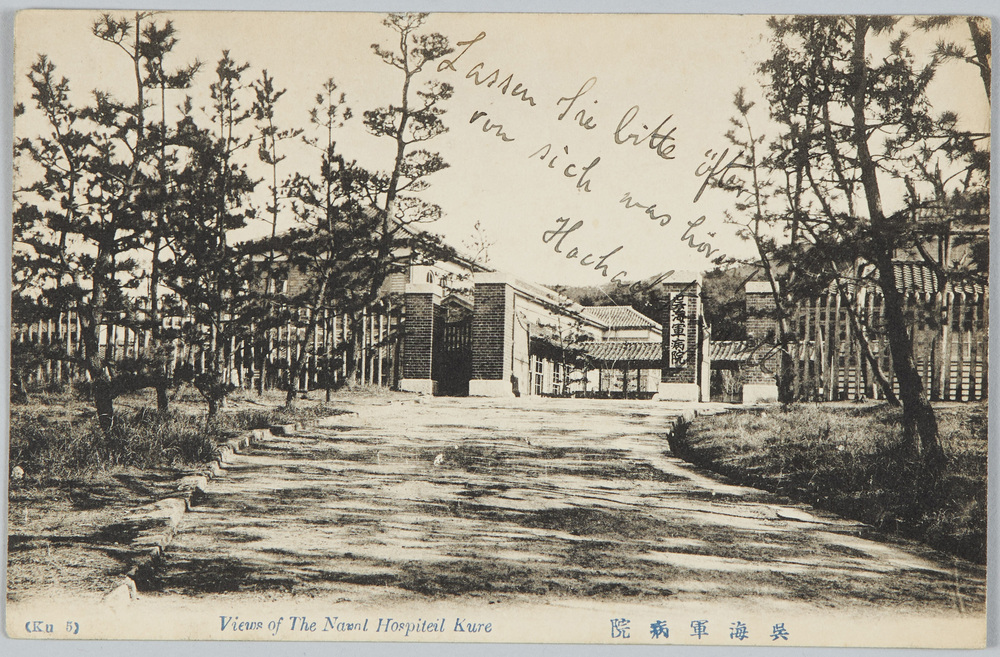 Lassen Sie bitte öfter
von sich was hören
呉海軍病院
(Ku 5)
Views of The Naval Hospiteil Kure
院病軍海呉